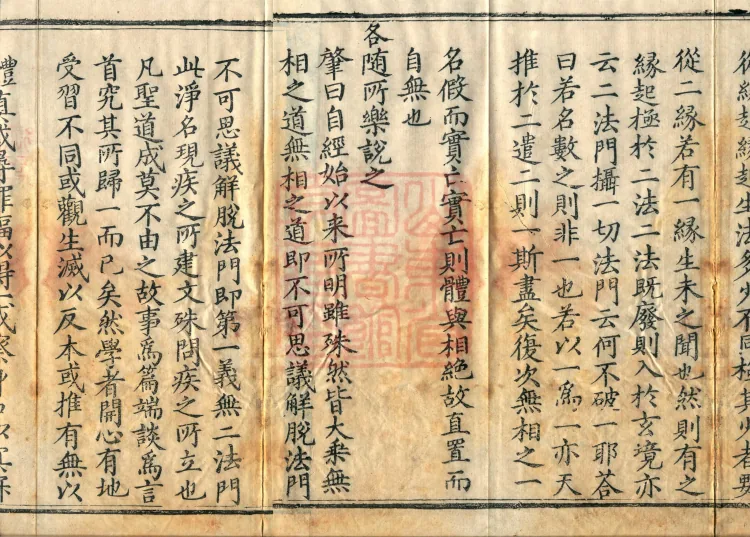 從緣起緣起生法多少不同極其少者要
從二緣若有一緣生未之聞也然則有之
緣起極於二法二法既廢則入於玄境亦
云二法門攝一切法門云何不破一耶荅
曰若名數之則非一也若以一爲一亦天
推於二遣二則一斯盡矣復次無相之一
名假而實亡實亡則體與相絶故直置而
自無也
各随所樂說之
肇曰自經始以来所明雖殊然皆大乗無
相之道無相之道即不可思議解脫法門
不可思議解脫法門即第一義無二法門
此淨名現疾之所建文殊問疾之所立也
凡聖道成莫不由之故事爲篇端談爲言
首究其所歸一而已矣然學者開心有地
受習不同或觀生滅以反本或推有無以
體真或尋罪福以得一或察身口以冥寂